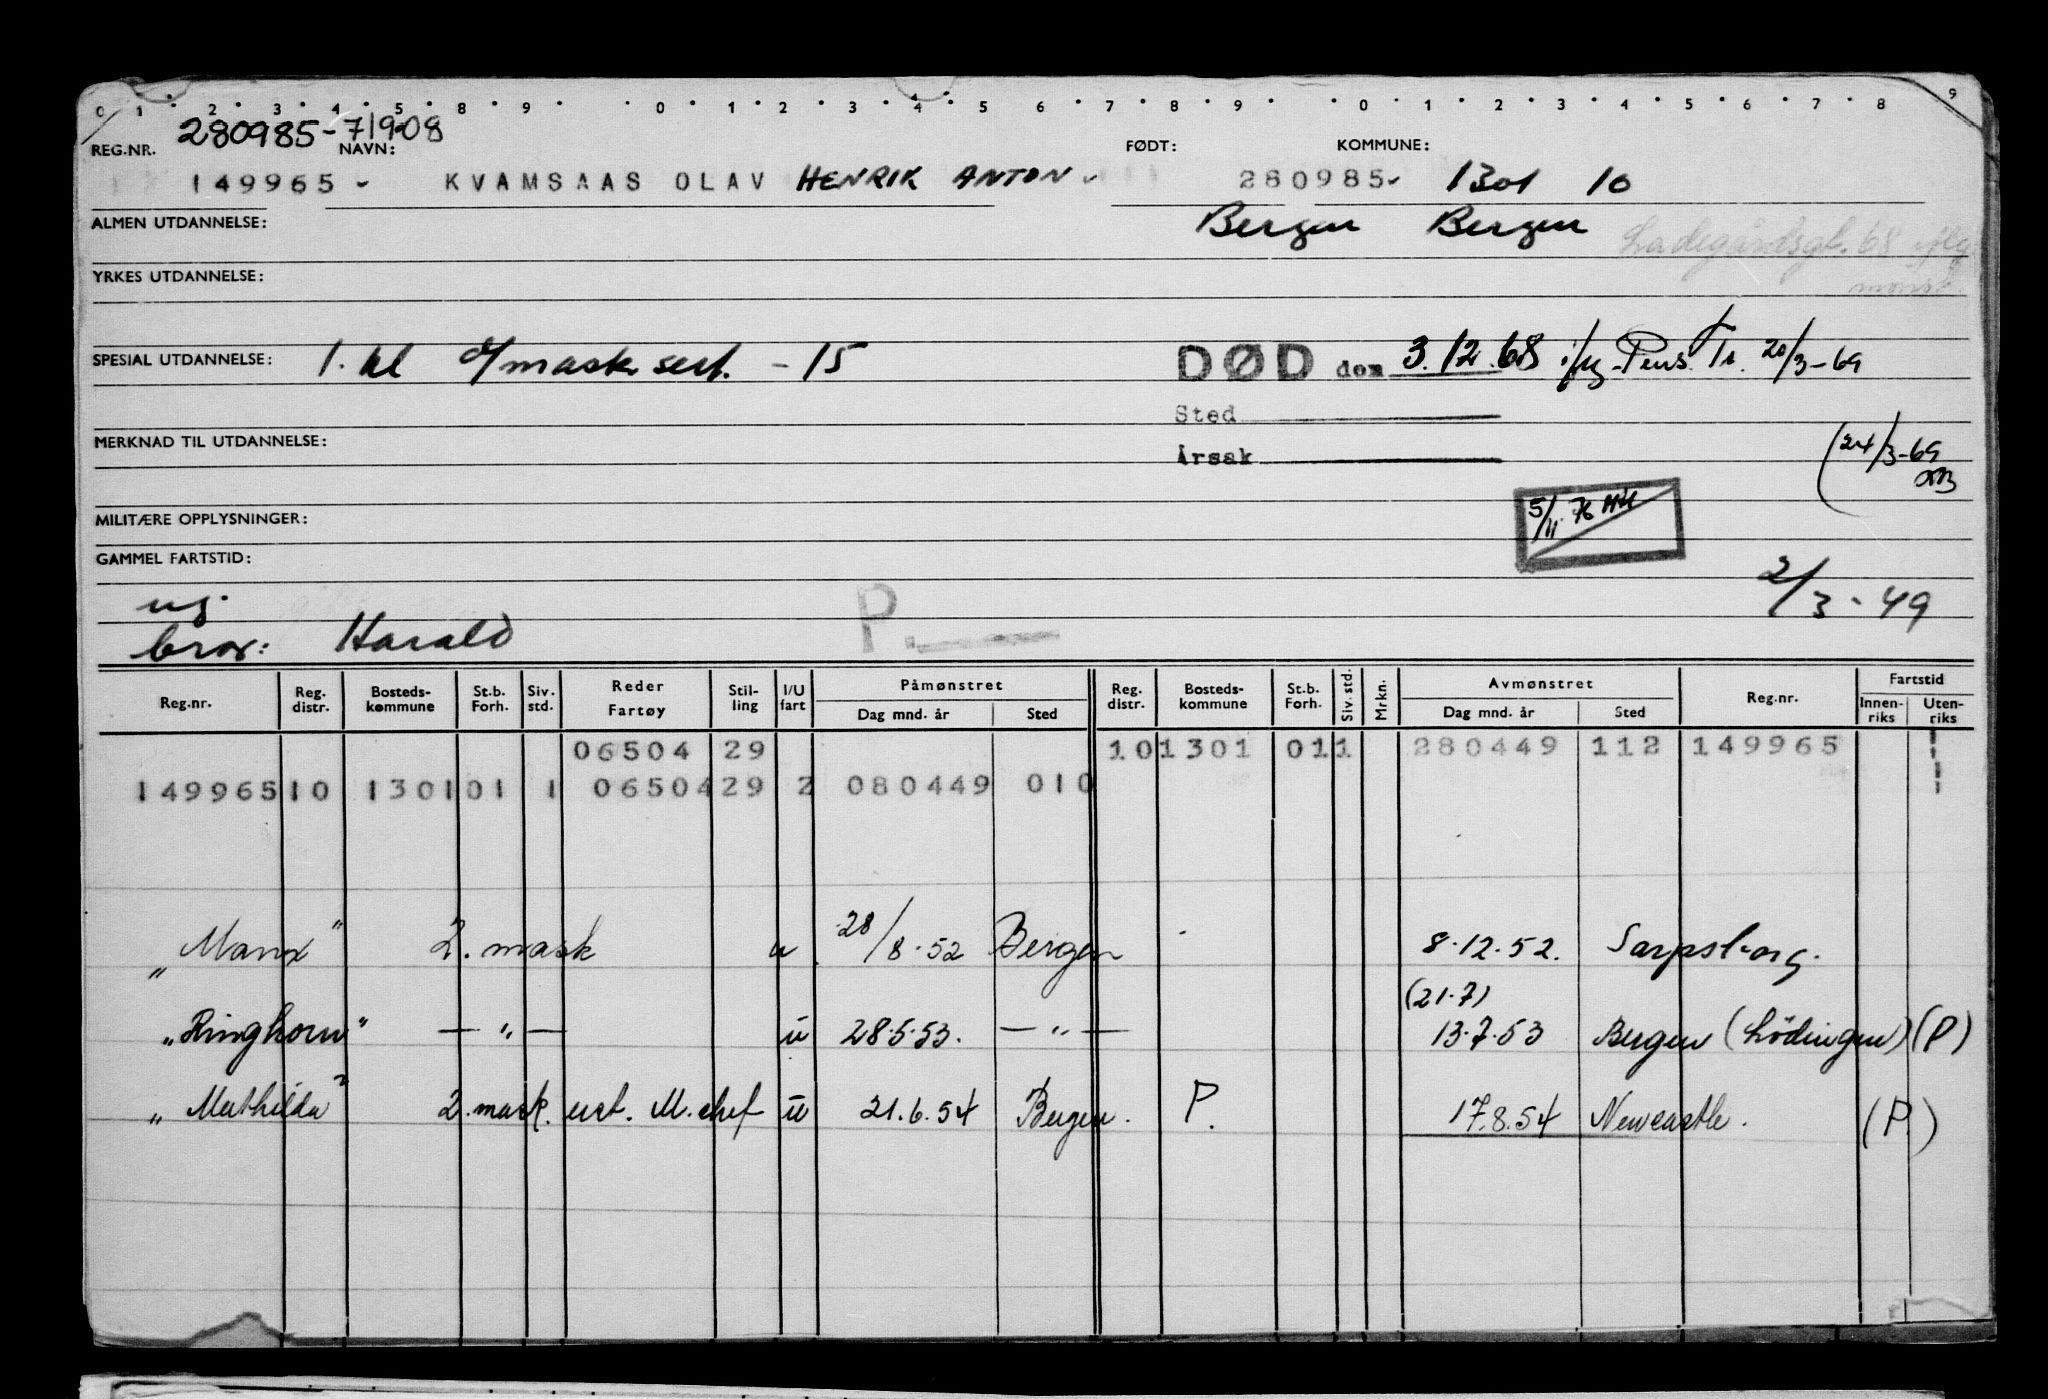 0 1 2 3 4 5 8 9 0 1 2 3 4 5 6 7 8 9 0 1 2 3 4 5 6 7 8 9
280985-71908
REG.NR. NAVN: FØDT: KOMMUNE:
149965 - KVAMSAAS OLAV HENRIK ANTON 280985 - 1301 10
ALMEN UTDANNELSE: Bergen Bergen Ladegårdsgt. 68 iflg
YRKES UTDANNELSE: mønst.
SPESIAL UTDANNELSE: 1. kl d/mask sert. - 15 DØD den 3.12.68 i/flg. Pens. Tr. 20/3-69
Sted
MERKNAD TIL UTDANNELSE: (24/3-69
Årsak
5/11 76
MILITÆRE OPPLYSNINGER:
GAMMEL FARTSTID:
2/3-49
ug.
bror: Harald P.
Reg.nr. Reg. distr. Bosteds-kommune St.b. Forh. Siv. std. Reder Fartøy Stil-ling I/U fart Påmønstret Dag mnd. år Sted Reg. distr. Bosteds-kommune St.b. Forh. Siv. std. Mrkn. Avmønstret Dag mnd. år Sted Reg.nr. Fartstid Innen-riks Uten-riks
06504 29 10 1301 01 1 280449 112 149965
149965 10 1301 01 1 06504 29 2 080449 010
"Manx" 2. mask u 28/8-52 Bergen 8.12.52. Sarpsborg.
(21.7)
"Ringhorn" — " — u 28.5.53. — " — 13.7.53 Bergen (Lødingen) (P)
"Mathilda" 2. mask. ust. M. chef u 21.6.54 Bergen. P. 17.8.54 Newcastle. (P.)